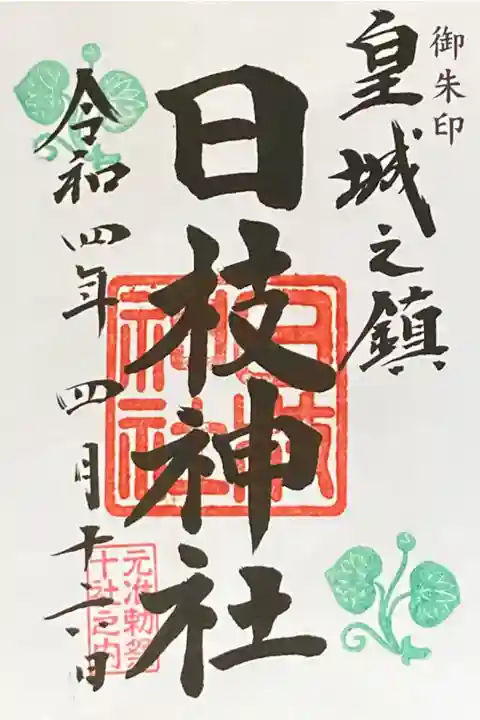 御朱印
皇城之鎮
日枝神社
日枝
神社
令和四年四月十二日
元准勅祭
十社之内